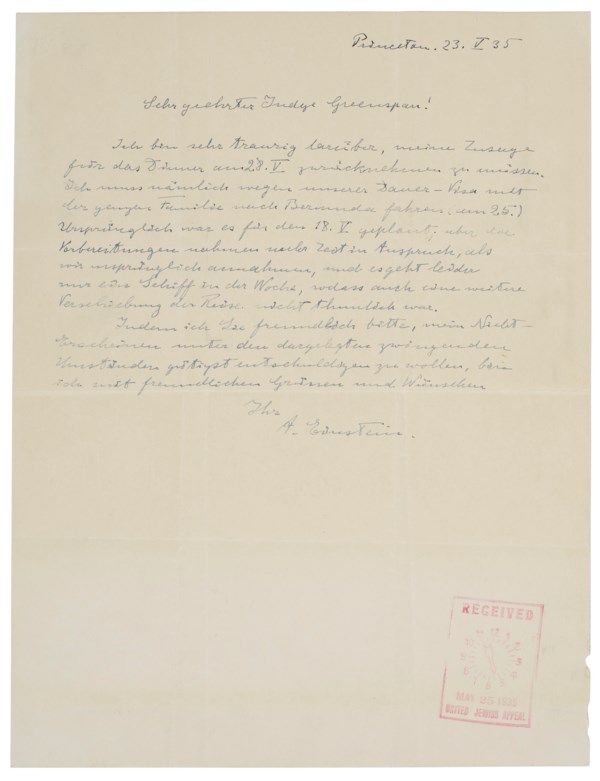 Princeton. 23. V 35
Sehr geehrter Judge Greenspan!
Ich bin sehr traurig darüber, meine Zusage
für das Dinner am 28. V zurücknehmen zu müssen.
Ich muss nämlich wegen unserer Dauer-Visa mit
der ganzen Familie nach Bermuda fahren (am 25.)
Ursprünglich war es für den 18. V. geplant, aber die
Vorbereitungen nahmen mehr Zeit in Anspruch, als
wir ursprünglich annahmen, und es geht leider
nur ein Schiff in der Woche, sodass auch eine weitere
Verschiebung der Reise nicht thunlich war.
Indem ich Sie freundlich bitte, mein Nicht-
Erscheinen unter den dargelegten zwingenden
Umständen gütigst entschuldigen zu wollen, bin
ich mit freundlichen Grüssen und Wünschen
Ihr
A. Einstein.
RECEIVED
MAY
UNITED JEWISH APPEAL